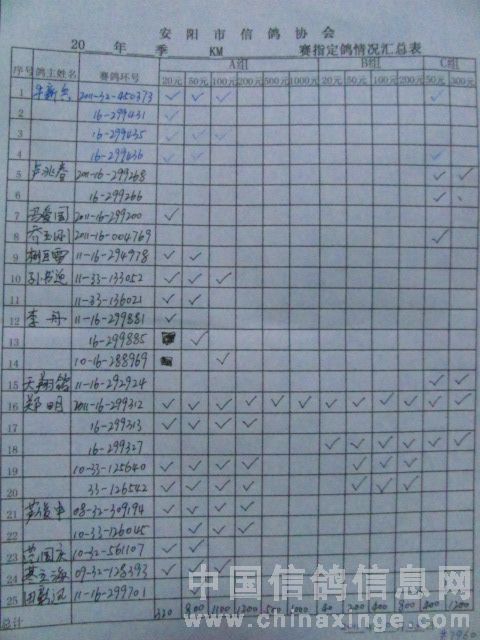 安阳市信鸽协会
20 年 季 KM 赛指定鸽情况汇总表
序号 鸽主姓名 赛鸽环号 A组 B组 C组
20元 50元 100元 200元 500元 1000元 20元 50元 100元 200元 50元 300元
1 2011-32-450373 ✓ ✓ ✓ ✓
2 16-299431 ✓
3 16-299435 ✓ ✓ ✓
4 16-299436 ✓ ✓ ✓ ✓
5 2011-16-299268 ✓ ✓
6 16-299266 ✓
7 2011-16-299200 ✓
8 2011-16-004769 ✓
9 11-16-294978 ✓ ✓
10 11-33-133052 ✓ ✓ ✓
11 11-33-136021 ✓ ✓
12 李丹 11-16-299881 ✓
13 16-299885 ✓
14 10-16-288969 ✓
15 天翔鸽 11-16-292924 ✓ ✓
16 郑明 2011-16-299312 ✓ ✓ ✓ ✓ ✓ ✓ ✓ ✓ ✓ ✓ ✓ ✓
17 16-299313 ✓ ✓ ✓ ✓
18 16-299327 ✓ ✓ ✓ ✓ ✓ ✓
19 10-33-125640 ✓ ✓ ✓ ✓ ✓ ✓ ✓
20 33-126542 ✓ ✓ ✓ ✓ ✓ ✓ ✓
21 08-32-309194 ✓ ✓ ✓ ✓
22 10-33-126045 ✓ ✓ ✓
23 10-32-561107 ✓ ✓
24 09-32-128393 ✓ ✓ ✓
25 11-16-299701
总计 320 800 1100 1200 500 1000 40 200 400 800 400 1200
中国信鸽信息网
www.chinaxinge.com